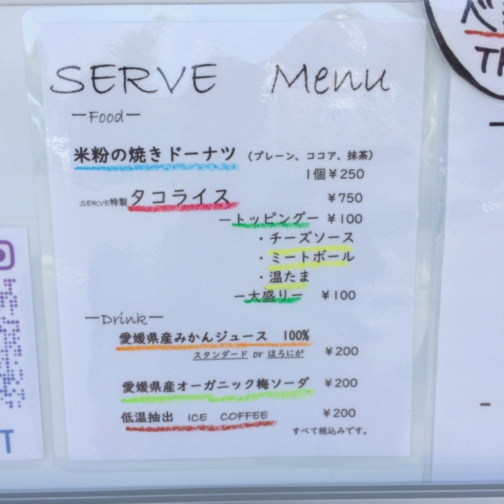 SERVE Menu
ーFoodー
米粉の焼きドーナツ (プレーン、ココア、抹茶)
1個¥250
SERVE特製 タコライス ¥750
ートッピングー ¥100
・チーズソース
・ミートボール
・温たま
ー大盛りー ¥100
ーDrinkー
愛媛県産みかんジュース 100%
スタンダード or ほろにが ¥200
愛媛県産オーガニック梅ソーダ ¥200
低温抽出 ICE COFFEE ¥200
すべて税込みです。